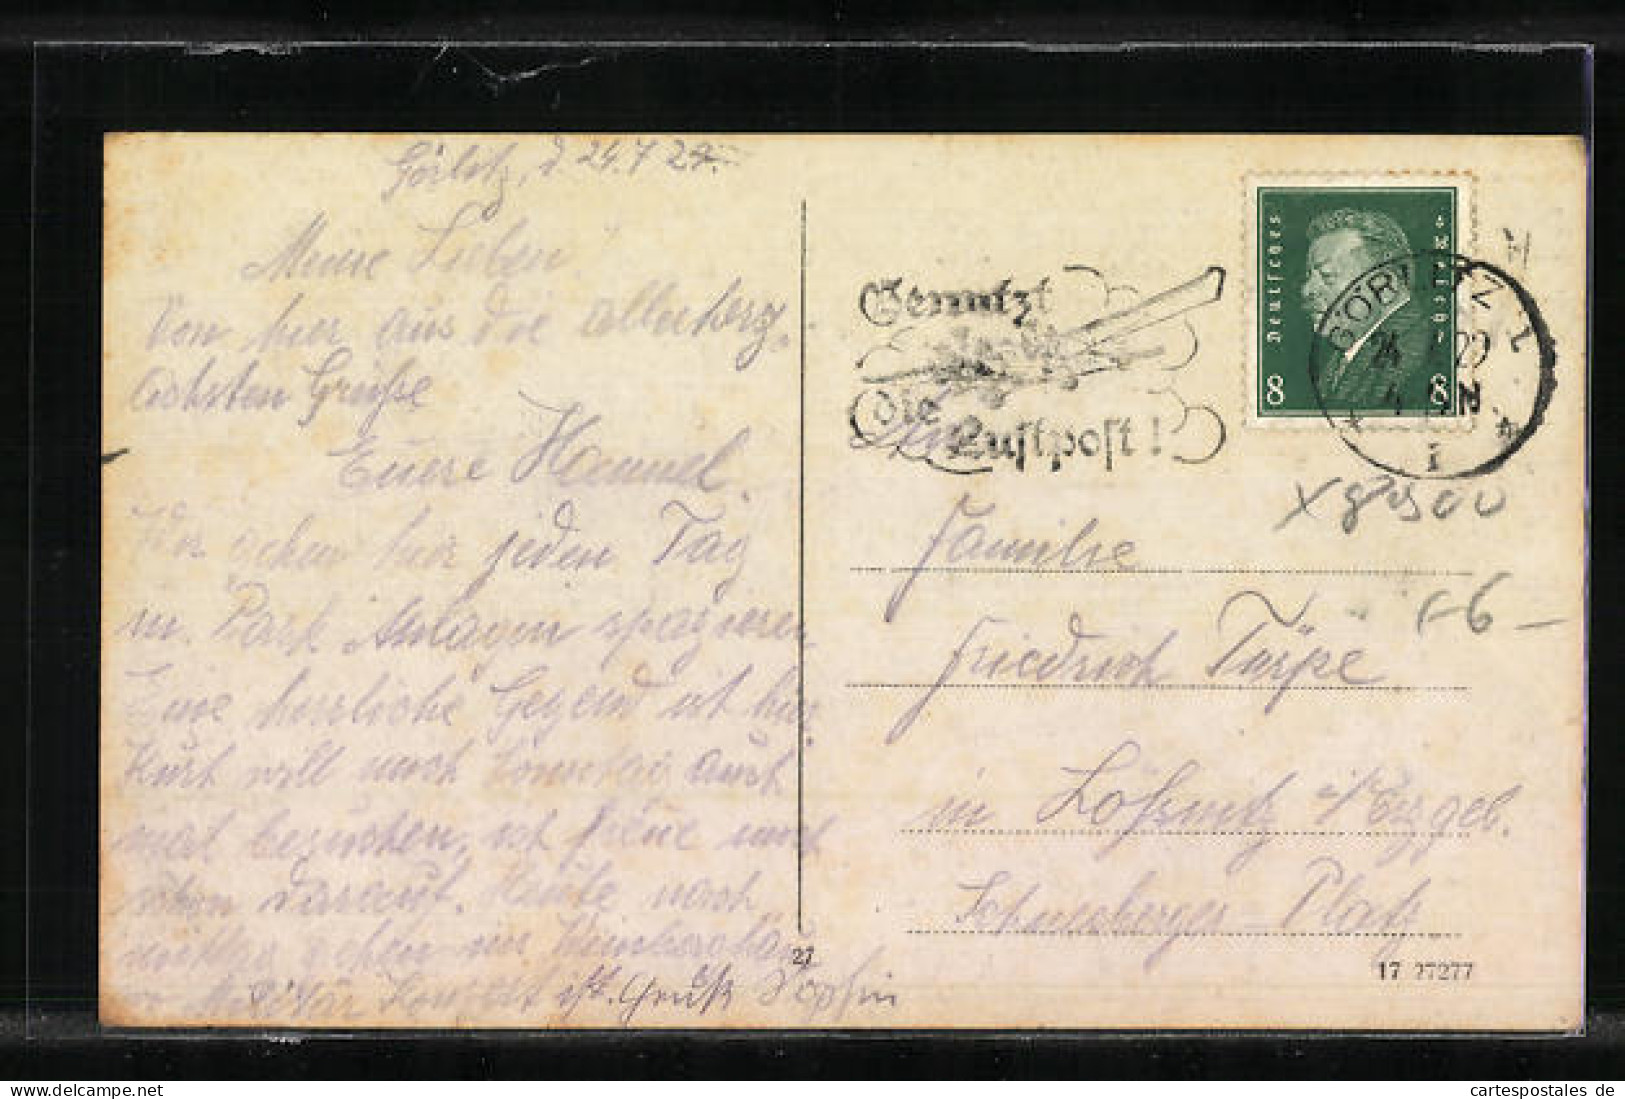 Görlitz, d. 24.7.29.
Meine Lieben!
Von hier aus die allerherz-
lichsten Grüße
Euere Hammel.
Wir gehen hier jeden Tag
in Park Anlagen spazieren
Eine herrliche Gegend ist hier
Kurt will nach Sonntag auch
mal besuchen, ich freue mich
schon darauf. Heute nach
mittag gehen wir Weinberghaus
wo Militär Konzert ist. Gruß Sophin
Benutzt
die Luftpost!
Deutsches Reich
8 8
GÖRLITZ 1
24. 7. 29
4-5 N
Familie
Friedrich Türpe
in Lößnitz i/Erzgeb.
Schneeberger-Platz
27
17 27277
cartespostales de